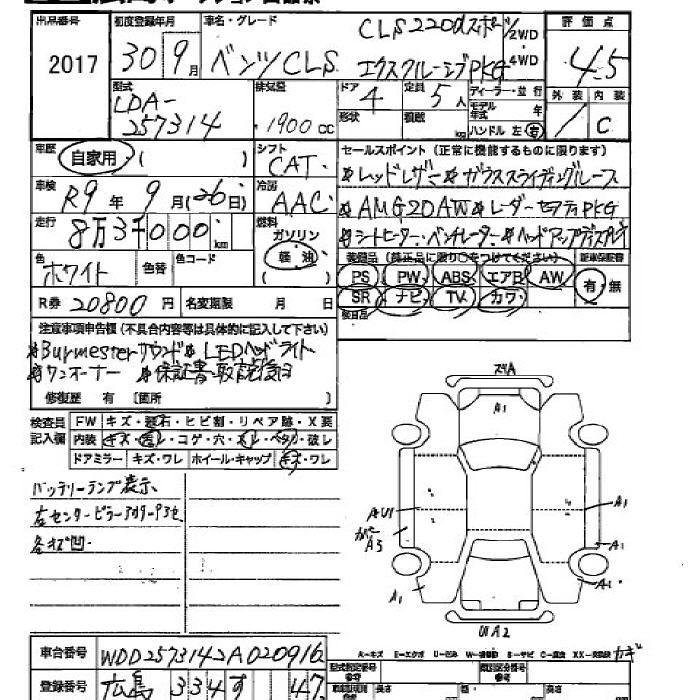 出品番号 初度登録年月 車名・グレード 評価点
2017 30 9月 ベンツCLS
CLS220dスポーツ 2WD
エクスクルーシブPKG 4WD 4.5
型式 排気量 ドア 定員 ディーラー・並行 外装 内装
LDA-257314 1900cc 4 5人 モデル年式 年 C
形状 積載 kg ハンドル 左 右
車歴 シフト セールスポイント(正常に機能するものに限ります)
自家用 ( ) CAT
車検 冷房 レッドレザー ガラススライディングルーフ
R9年 9月(26日) AAC AMG20AW レーダーセーフティPKG
走行 燃料 シートヒーター・ベンチレーター ヘッドアップディスプレイ
8万3千000km ガソリン 軽油
装備品(純正品に限り○をつけてください) 新車保証書
色 色替 色コード PS PW ABS エアB AW 有・無
ホワイト SR ナビ TV カワ
R券 20800円 名変期限 月 日
注意事項申告欄(不具合内容等は具体的に記入して下さい)
Burmesterサウンド LEDヘッドライト
ワンオーナー 保証書・取説後日
修復歴 有 〔箇所 〕
検査員記入欄 FW キズ・飛石・ヒビ割・リペア跡・X要
内装 キズ・・コゲ・穴・・・破レ
ドアミラー キズ・ワレ ホイール・キャップ キズ・ワレ
バッテリーランプ表示
右センターピラー
各凹
A1
AU1
A3
A1
A1
A1
A1
U1A2
A-キズ E-エクボ U-凹み S-サビ
車台番号 WDD2573142A020916
登録番号 広島 334 す 47
型式指定番号 類別区分番号
長さ 幅 高さ